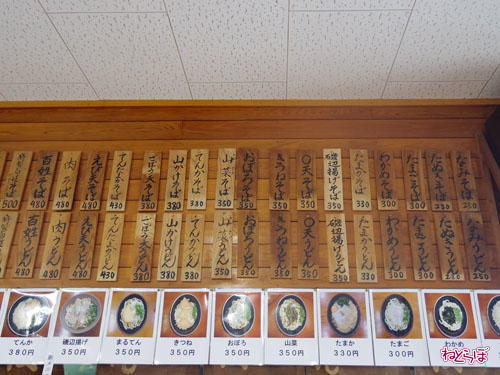 なみそば 250
たぬきそば 250
たまごそば 300
わかめそば 300
たまかそば 330
磯辺揚げそば 350
〇天そば 350
きつねそば 350
おぼろそば 350
山菜そば 350
てんかそば 380
山かけそば 380
ごぼう天そば
てんたまそば 430
えび天そば 480
肉そば 480
百姓そば 480
500
なみうどん 250
たぬきうどん 250
たまごうどん 300
わかめうどん 300
たまかうどん
磯辺揚げうどん 350
〇天うどん 350
きつねうどん 350
おぼろうどん 350
山菜うどん 350
てんかうどん 380
山かけうどん 380
ごぼう天うどん 380
てんたまうどん 430
えび天うどん 480
肉うどん 480
百姓うどん 480
てんか
380円
磯辺揚げ
350円
まるてん
350円
きつね
350円
おぼろ
350円
山菜
350円
たまか
330円
たまご
300円
わかめ
ねとらぼ